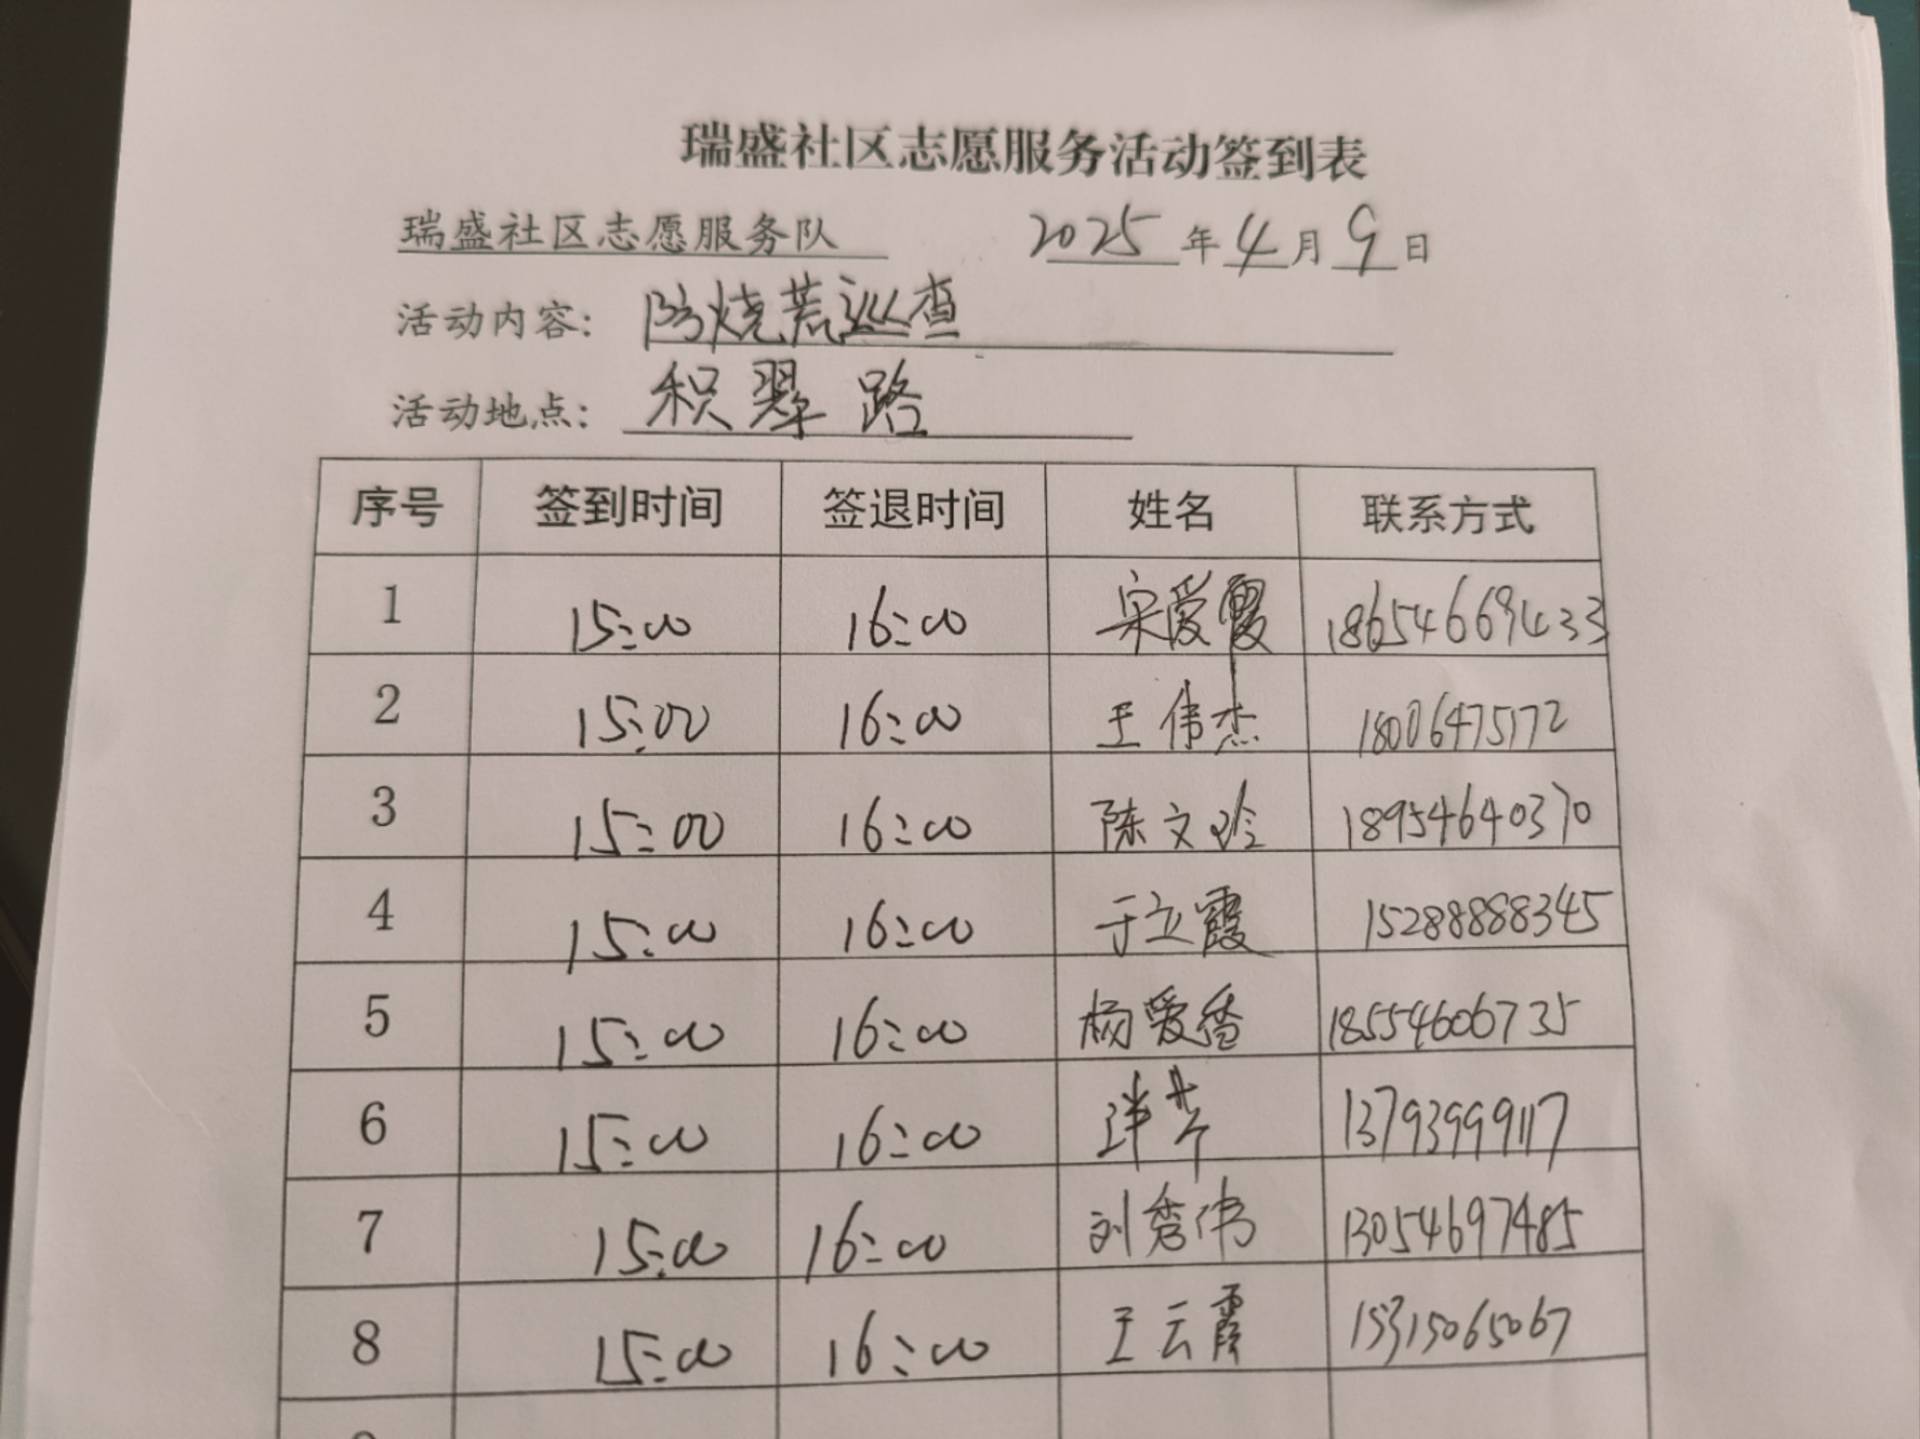 瑞盛社区志愿服务活动签到表
瑞盛社区志愿服务队 2025年4月9日
活动内容: 防烧荒巡查
活动地点: 积翠路
序号 签到时间 签退时间 姓名 联系方式
1 15:00 16:00 宋爱霞 18654669433
2 15:00 16:00 王伟杰 18006475172
3 15:00 16:00 陈文玲 18954640370
4 15:00 16:00 于立霞 15288888345
5 15:00 16:00 杨爱香 18554606735
6 15:00 16:00 13793999117
7 15:00 16:00 刘秀伟 13054697485
8 15:00 16:00 王云霞 15315065067